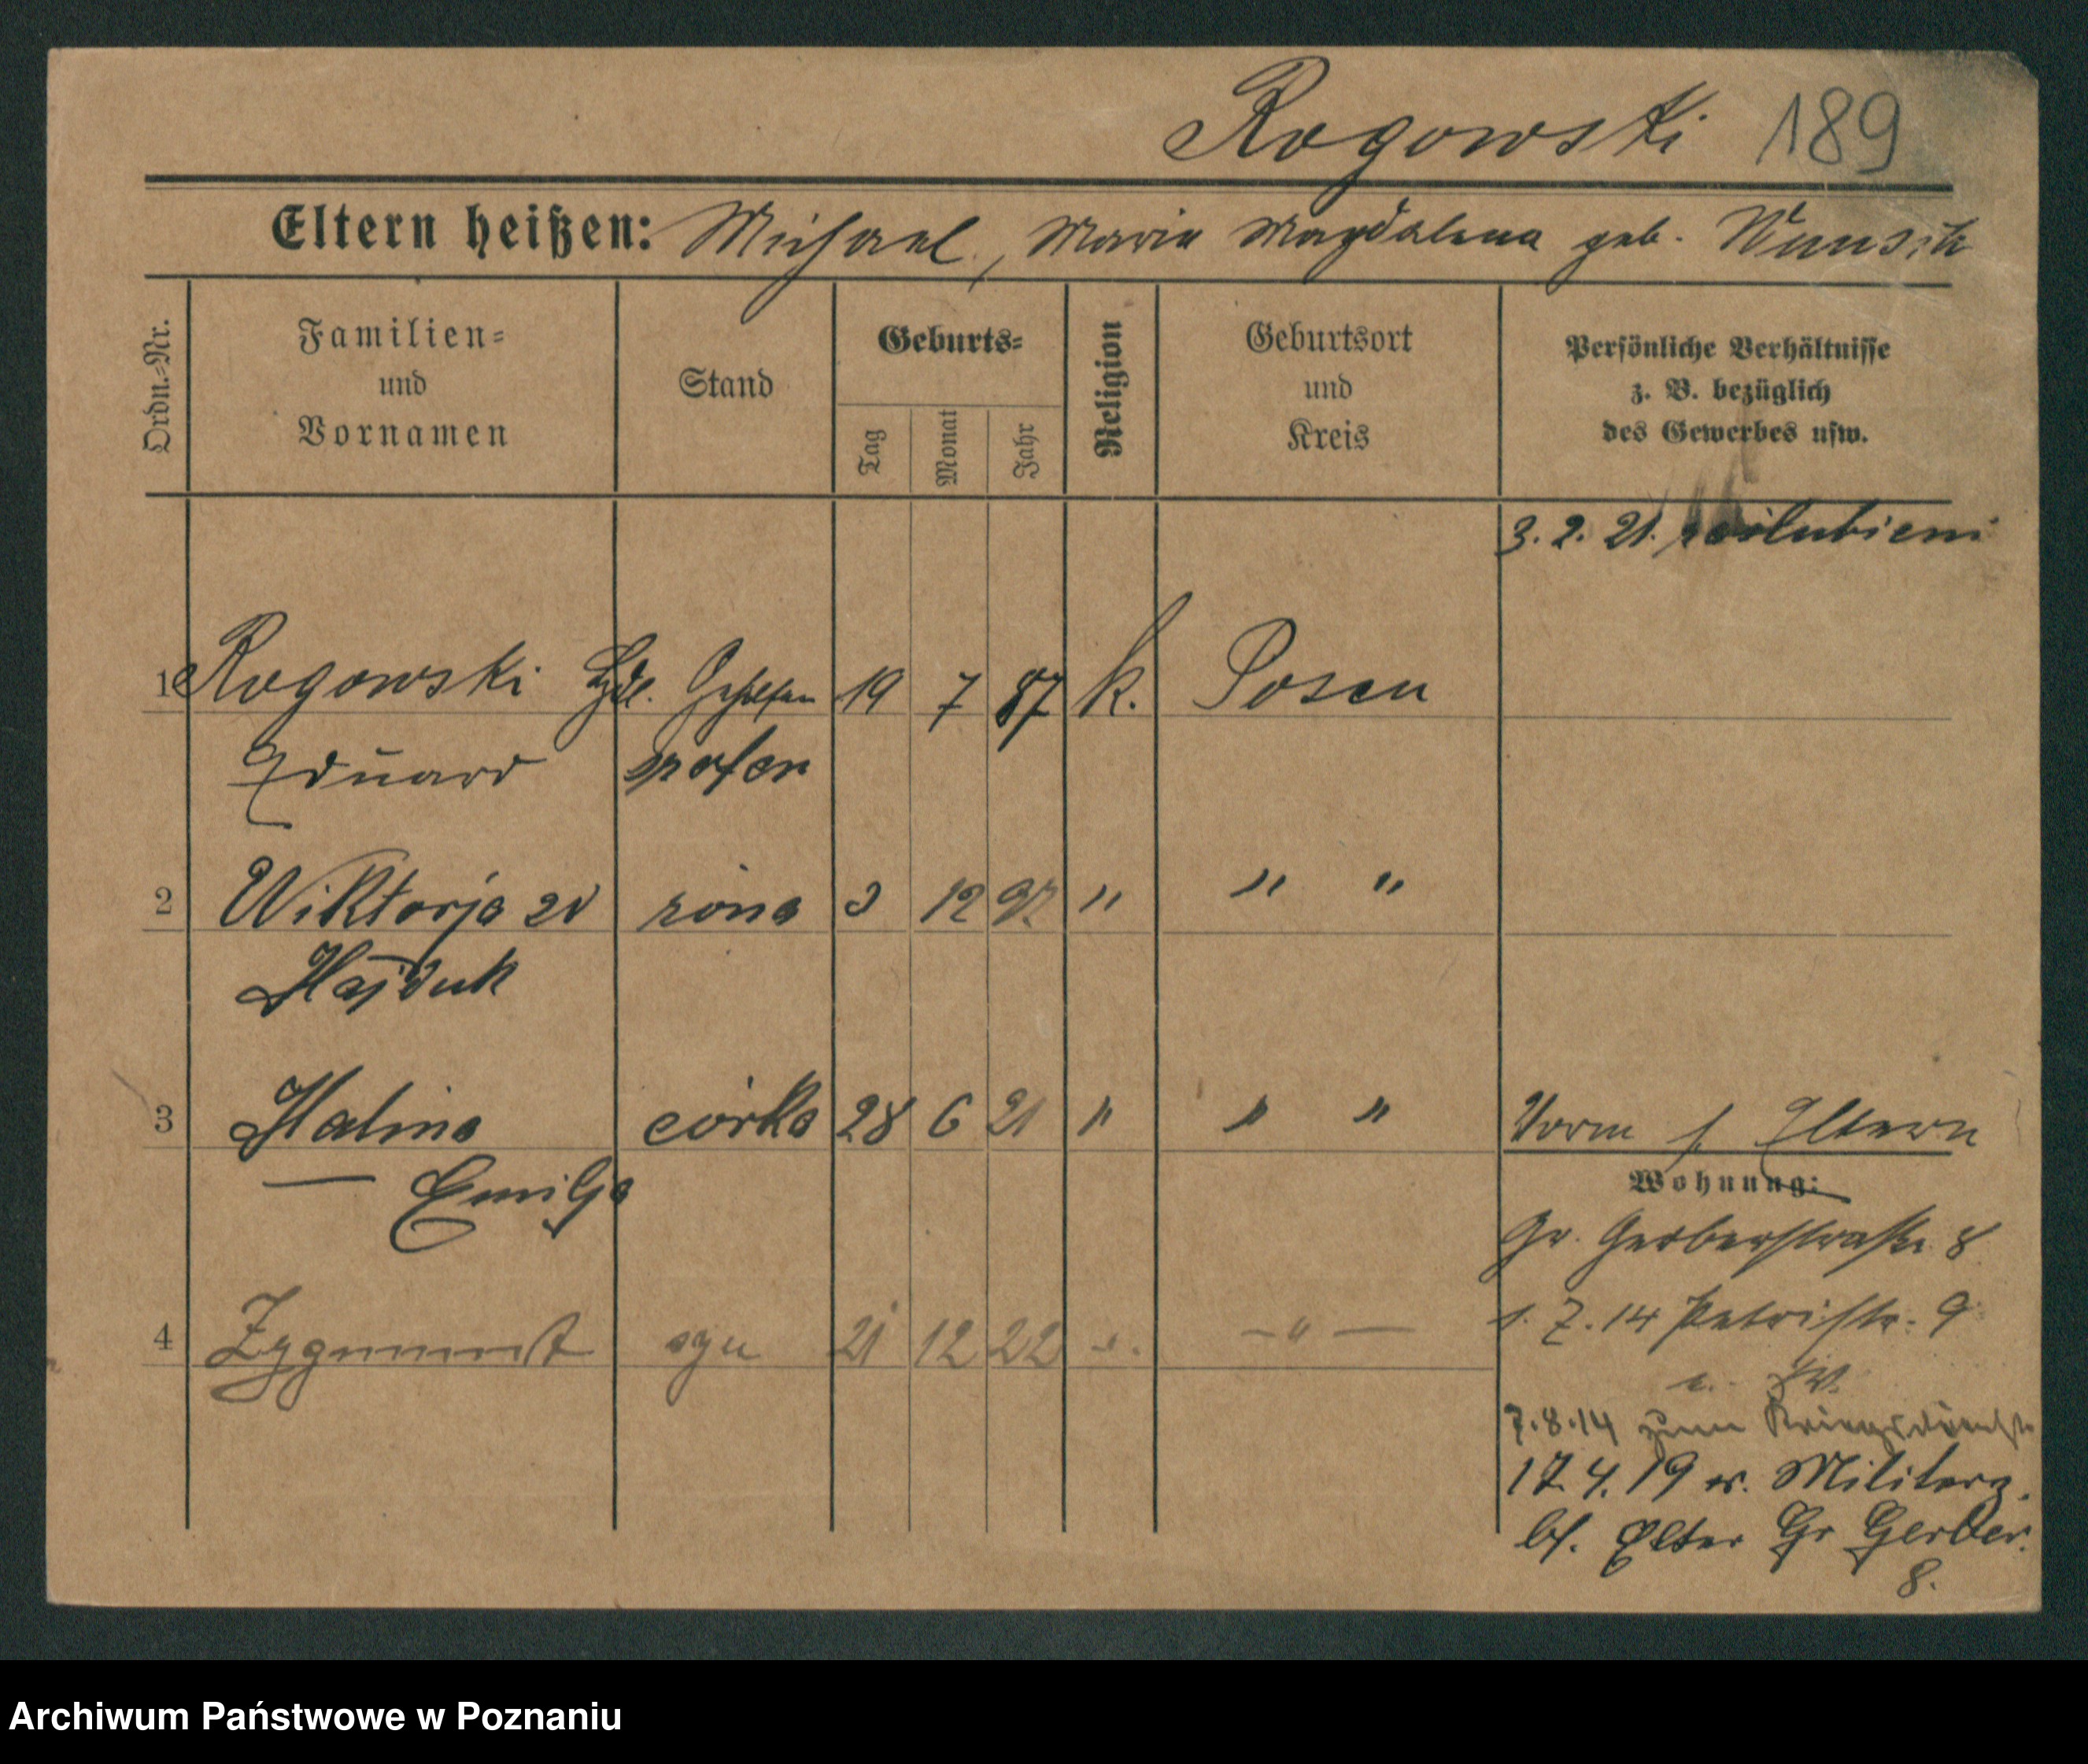 Rogowski 189
Eltern heißen: Michael, Maria Magdalena geb.
Ordn.-Nr.
Familien-
und
Vornamen
Stand
Geburts-
Tag
Monat
Jahr
Religion
Geburtsort
und
Kreis
Persönliche Verhältnisse
z. B. bezüglich
des Gewerbes usw.
3. 2. 21. poślubieni
1 Rogowski 19 7 87 k. Posen
Eduard
2 Wiktorja zd żona 3 12 97 " " "
Hajduk
3 Halina córka 28 6 21 " " "
— Emilja
4 Zygmunt syn 21 12 22 " — " —
Vorm f. Eltern
Wohnung:
Gr. Gerberstraße 8
1. 7. 14 Petristr. 9
7.8.14 zum Kriegsdienst
17.4.19 v. Militär
bf. Elter Gr Gerber.
8.
Archiwum Państwowe w Poznaniu